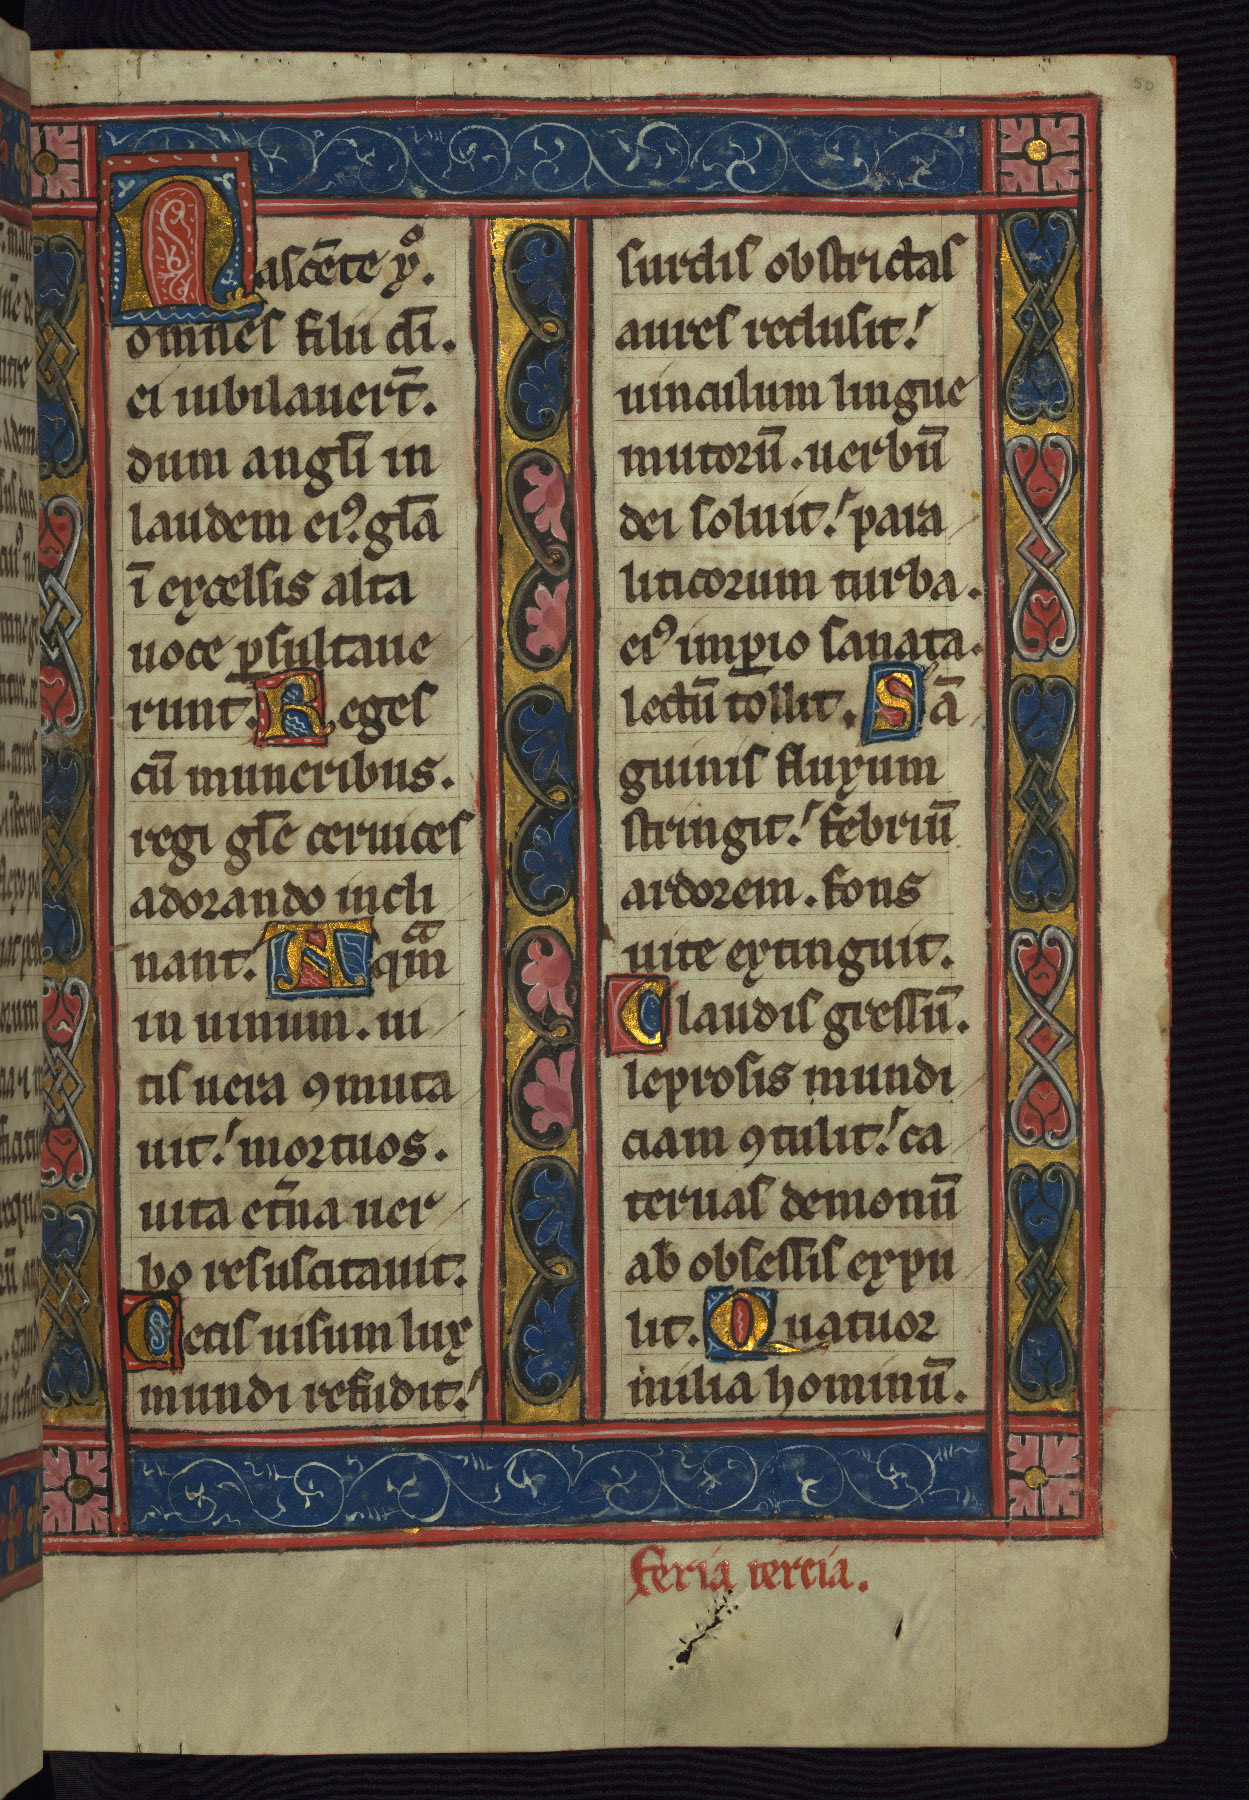 Nascēte xp̄o.
omnes filii dī.
ei iubilauert̄.
dum angl̄i in
laudem ei⁹. gl̄a
ī excelsis alta
uoce ꝑsultaue
runt. Reges
cū muneribus.
regi gl̄e ceruices
adorando incli
nant. Aqᵃm
in uinum. ui
tis uera ꝯmuta
uit: mortuos.
uita et̄na uer
bo resuscitauit.
Cecis uisum lux
mundi refudit:
surdis obstrictas
aures reclusit:
uinculum lingue
mutorū. uerbū
dei soluit: para
liticorum turba.
ei⁹ imꝑio sanata.
lectū tollit. Sā
guinis fluxum
stringit: febriū
ardorem. fons
uite extinguit.
Claudis gressū.
leprosis mundi
ciam ꝯtulit: ca
teruas demonū
ab obsessis expu
lit. Quatuor
milia hominū.
feria tercia.
50